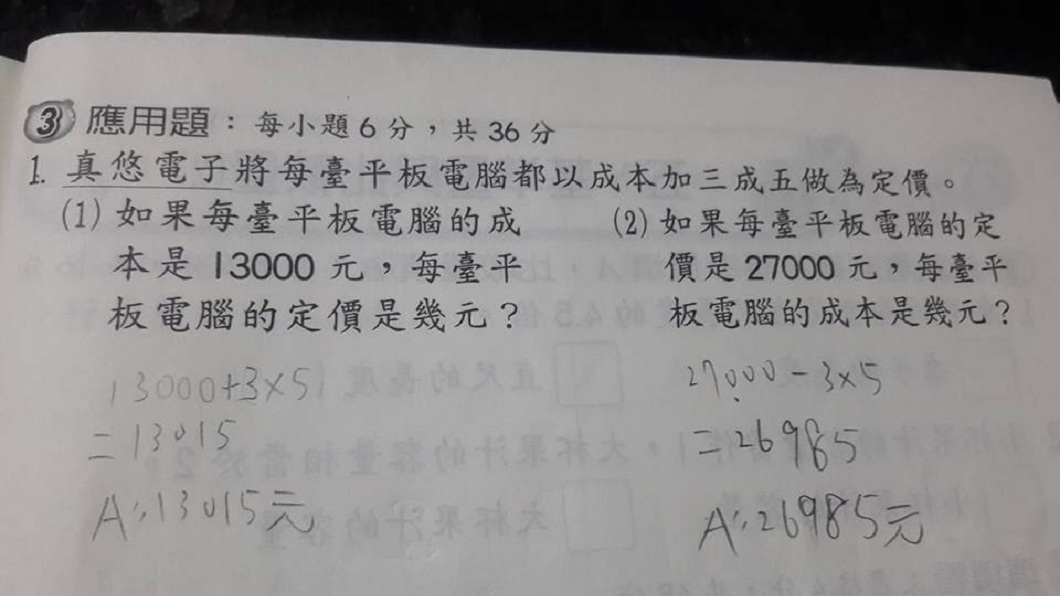 3 應用題：每小題6分，共36分
1. 真悠電子將每臺平板電腦都以成本加三成五做為定價。
(1) 如果每臺平板電腦的成
本是13000元，每臺平
板電腦的定價是幾元？
13000+3×5
=13015
A:13015元
(2) 如果每臺平板電腦的定
價是27000元，每臺平
板電腦的成本是幾元？
27000-3×5
=26985
A:26985元